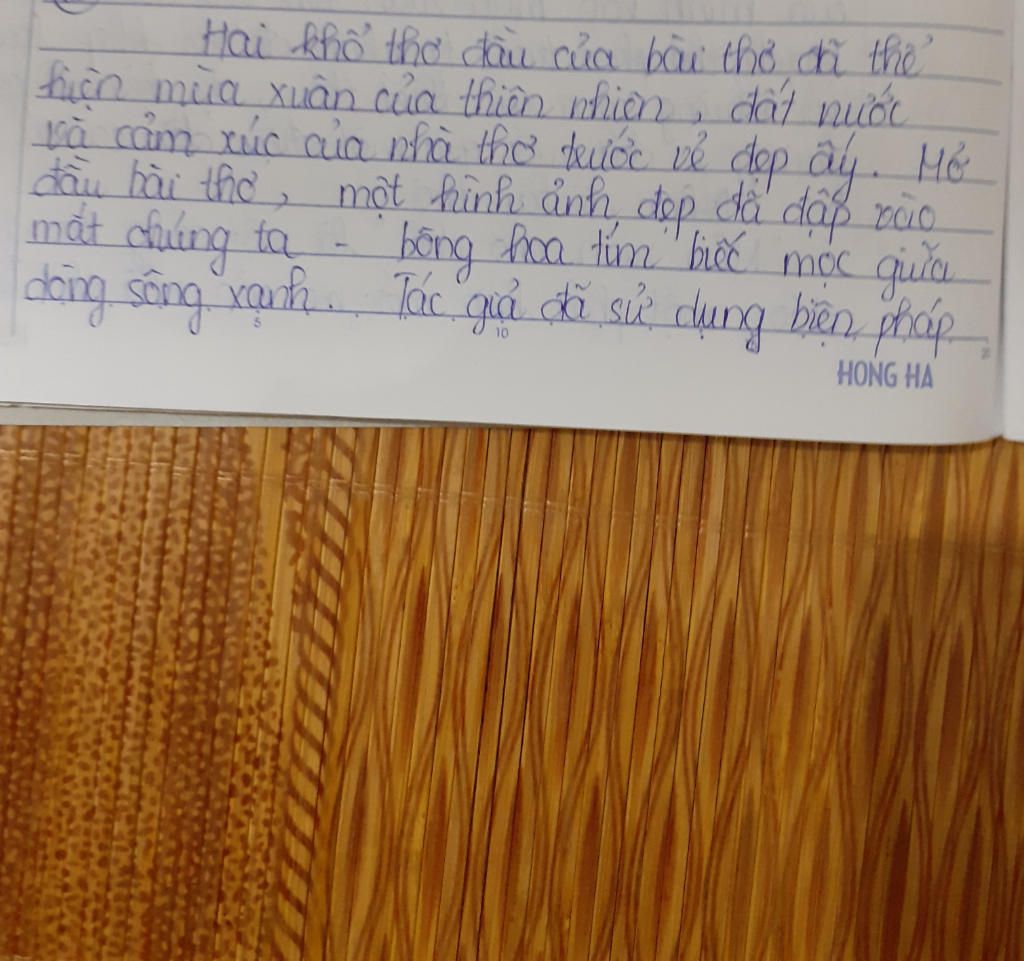 Hai khổ thơ đầu của bài thơ đã thể
hiện mùa xuân của thiên nhiên, đất nước
và cảm xúc của nhà thơ trước vẻ đẹp ấy. Mở
đầu bài thơ, một hình ảnh đẹp đã đập vào
mắt chúng ta - bông hoa tím biếc mọc giữa
dòng sông xanh. Tác giả đã sử dụng biện pháp
5 10
HONG HA